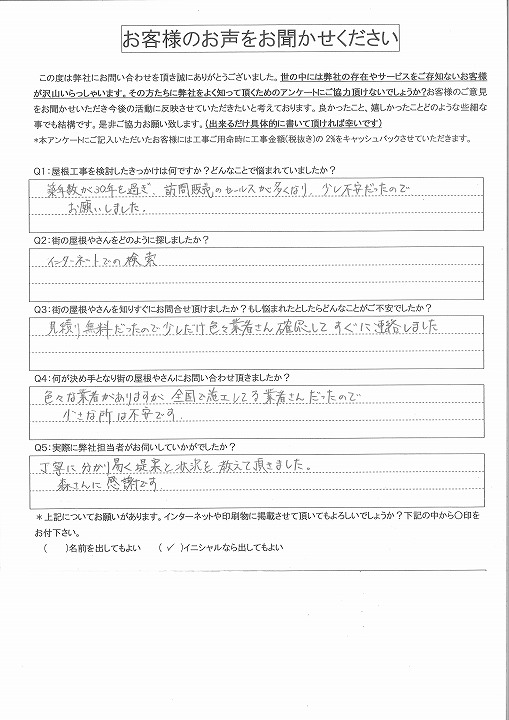 お客様のお声をお聞かせください
この度は弊社にお問い合わせを頂き誠にありがとうございました。世の中には弊社の存在やサービスをご存知ないお客様
が沢山いらっしゃいます。その方たちに弊社をよく知って頂くためのアンケートにご協力頂けないでしょうか?お客様のご意見
をお聞かせいただき今後の活動に反映させていただきたいと考えております。良かったこと、嬉しかったことどのような些細な
事でも結構です。是非ご協力お願い致します。(出来るだけ具体的に書いて頂ければ幸いです)
*本アンケートにご記入いただいたお客様には工事ご用命時に工事金額(税抜き)の2%をキャッシュバックさせていただきます。
Q1:屋根工事を検討したきっかけは何ですか?どんなことで悩まれていましたか?
築年数が30年を過ぎ、訪問販売のセールスが多くなり、少し不安だったので
お願いしました。
Q2:街の屋根やさんをどのように探しましたか?
インターネットでの検索
Q3:街の屋根やさんを知りすぐにお問合せ頂けましたか?もし悩まれたとしたらどんなことがご不安でしたか?
見積り無料だったので少しだけ色々業者さん確認して すぐに連絡しました
Q4:何が決め手となり街の屋根やさんにお問い合わせ頂きましたか?
色々な業者がありますが、全国で施工してる業者さんだったので
小さな所は不安です
Q5:実際に弊社担当者がお伺いしていかがでしたか?
丁寧に分かり易く提案と状況を教えて頂きました。
森さんに感謝です
*上記についてお願いがあります。インターネットや印刷物に掲載させて頂いてもよろしいでしょうか?下記の中から○印を
お付下さい。
( )名前を出してもよい (✓)イニシャルなら出してもよい